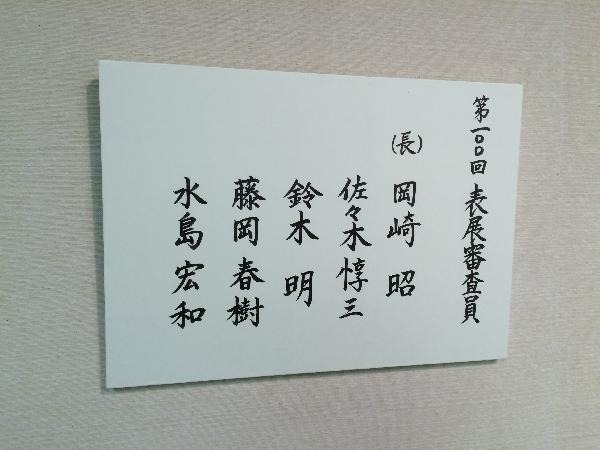 第一〇〇回 表展審査員
(長) 岡崎 昭
佐々木惇三
鈴木 明
藤岡春樹
水島宏和